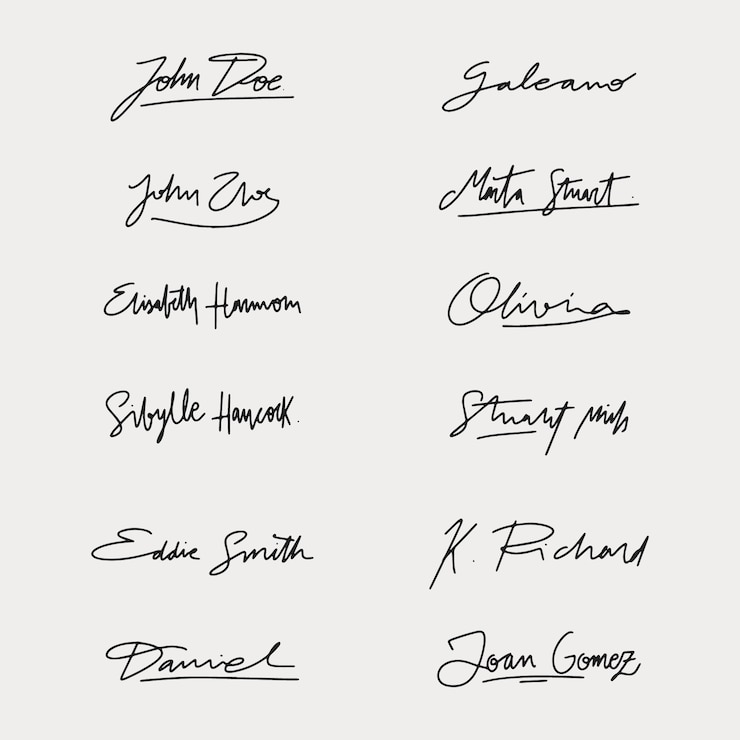 John Doe.
Galeano
John
Marta Stuart.
Elisabeth Harmom
Olivia
Sibylle Haycock.
Stuart
Eddie Smith
K. Richard
Daniel
Joan Gomez